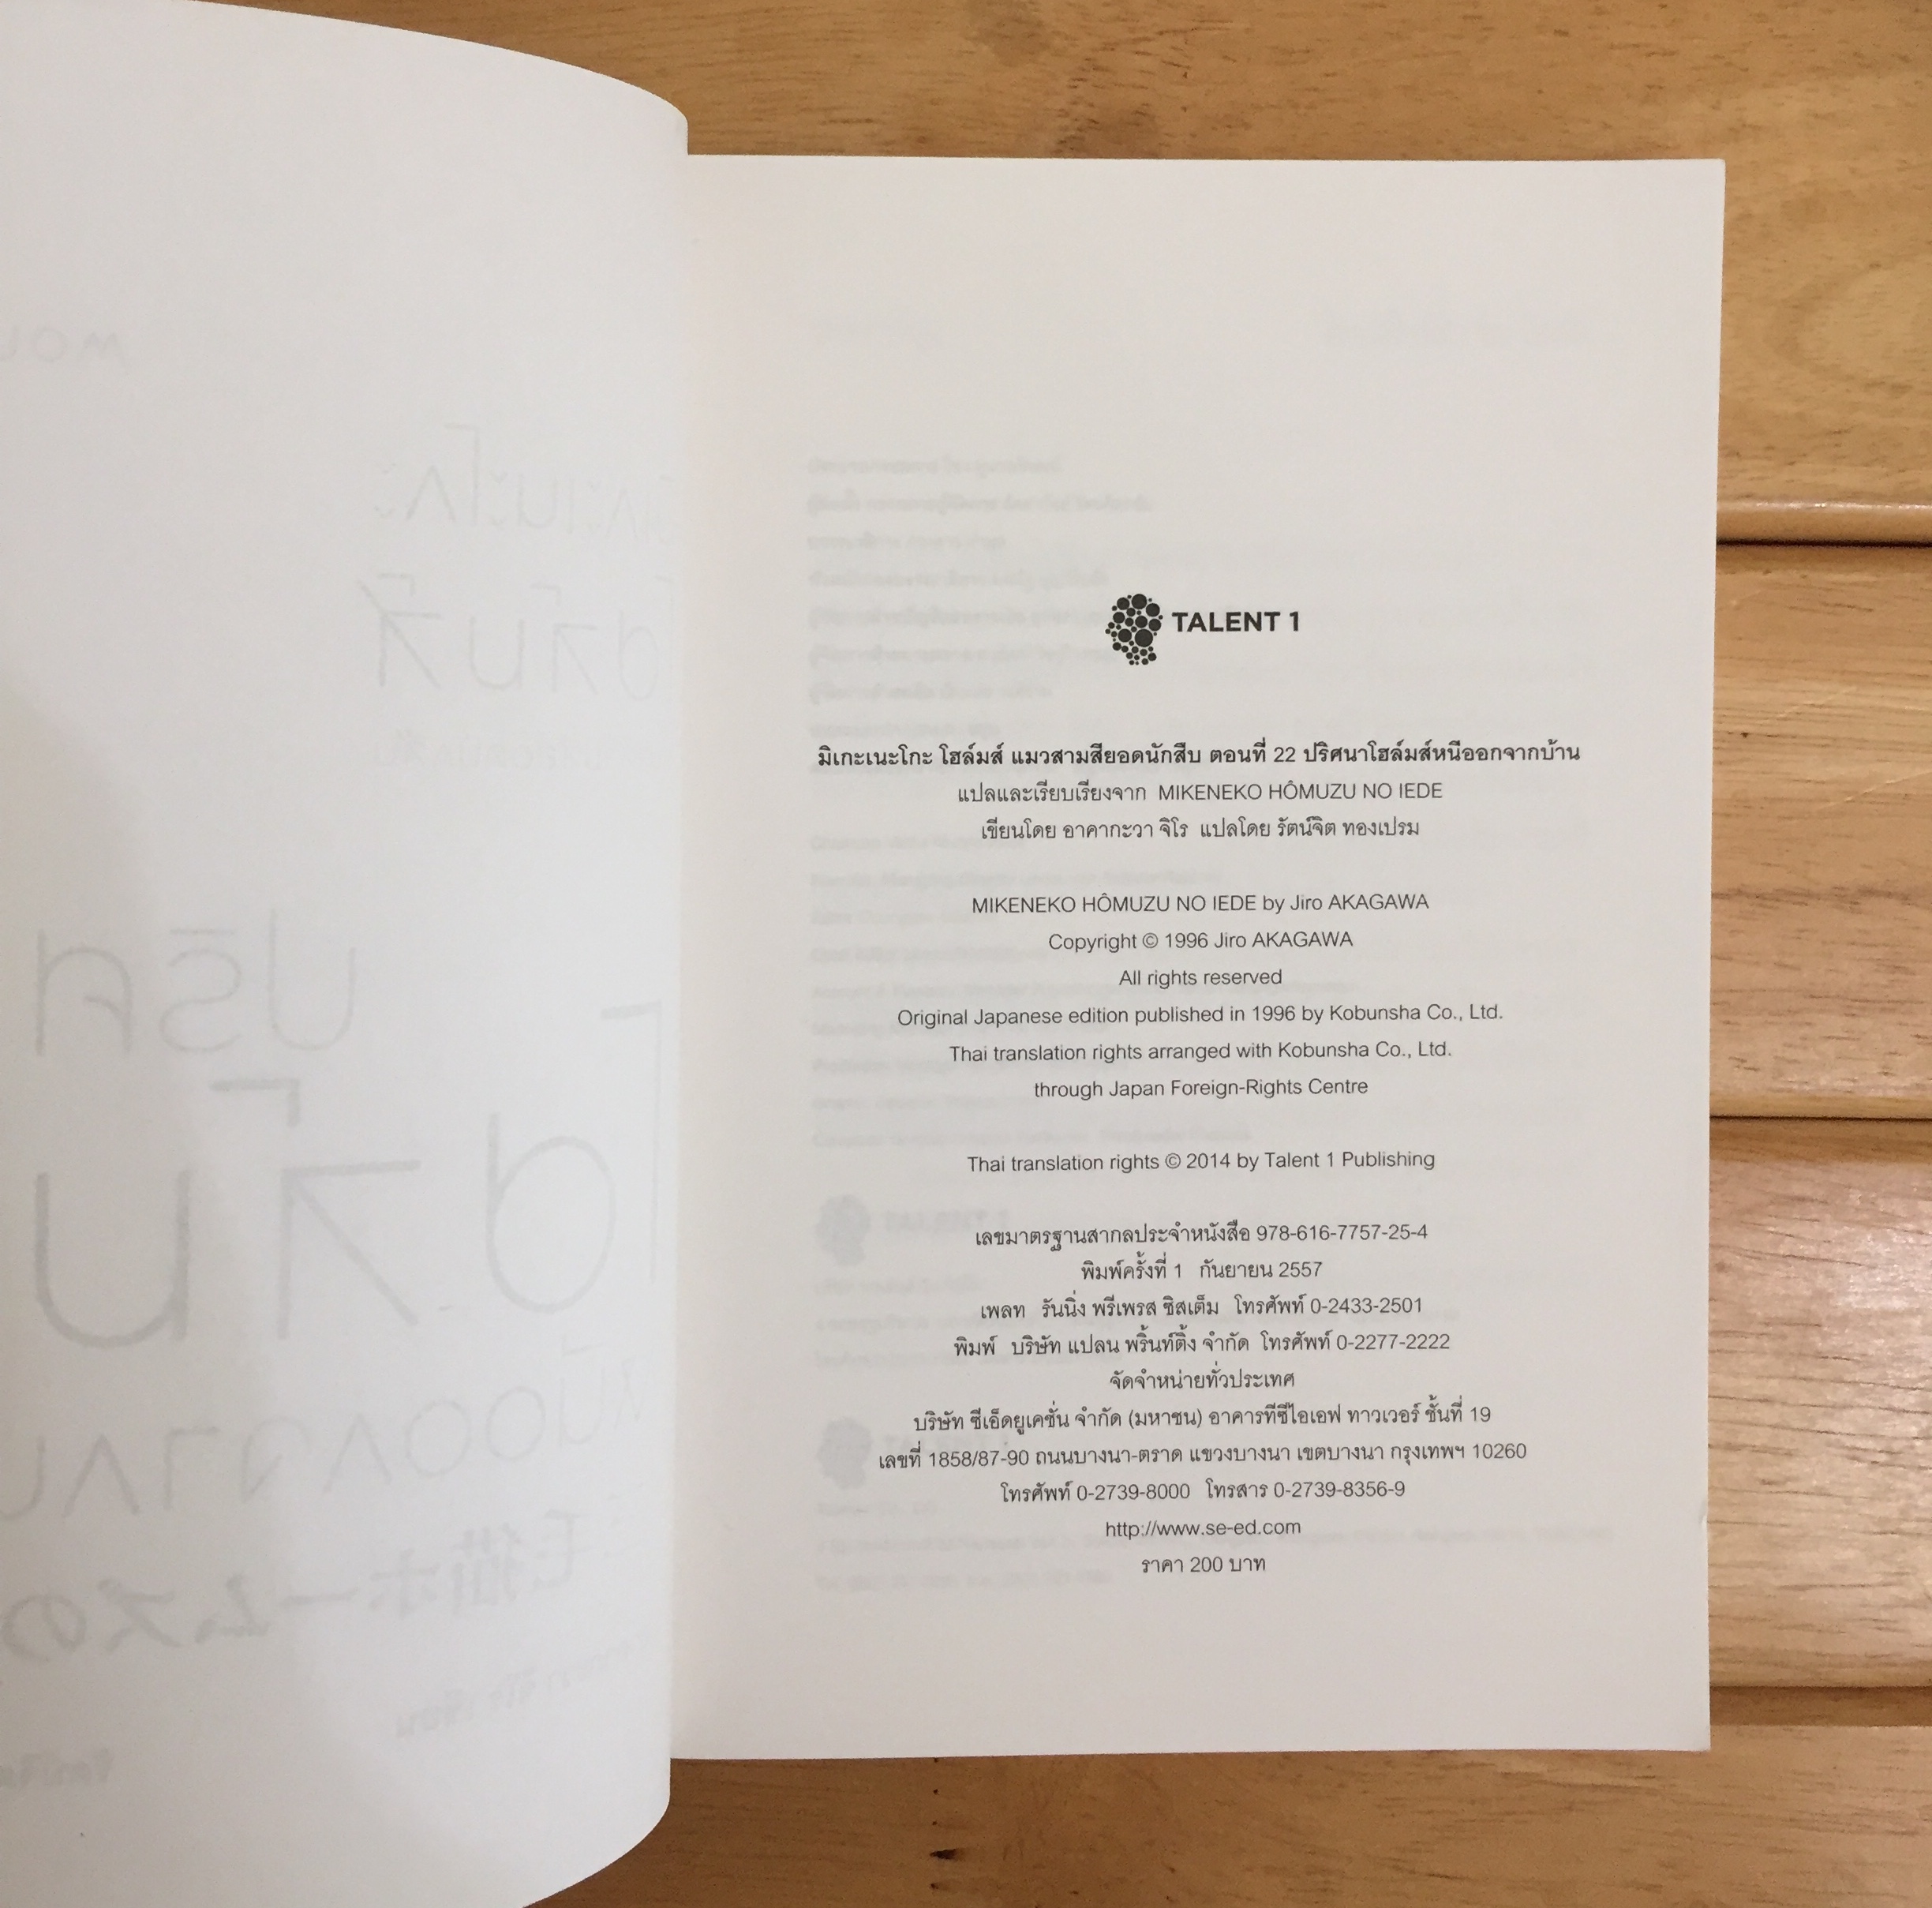 TALENT 1
มิเกะเนะโกะ โฮล์มส์ แมวสามสียอดนักสืบ ตอนที่ 22 ปริศนาโฮล์มส์หนีออกจากบ้าน
แปลและเรียบเรียงจาก MIKENEKO HÔMUZU NO IEDE
เขียนโดย อาคากะวา จิโร แปลโดย รัตน์จิต ทองเปรม
MIKENEKO HÔMUZU NO IEDE by Jiro AKAGAWA
Copyright © 1996 Jiro AKAGAWA
All rights reserved
Original Japanese edition published in 1996 by Kobunsha Co., Ltd.
Thai translation rights arranged with Kobunsha Co., Ltd.
through Japan Foreign-Rights Centre
Thai translation rights © 2014 by Talent 1 Publishing
เลขมาตรฐานสากลประจำหนังสือ 978-616-7757-25-4
พิมพ์ครั้งที่ 1 กันยายน 2557
เพลท รันนิ่ง พรีเพรส ซิสเต็ม โทรศัพท์ 0-2433-2501
พิมพ์ บริษัท แปลน พริ้นท์ติ้ง จำกัด โทรศัพท์ 0-2277-2222
จัดจำหน่ายทั่วประเทศ
บริษัท ซีเอ็ดยูเคชั่น จำกัด (มหาชน) อาคารทีซีไอเอฟ ทาวเวอร์ ชั้นที่ 19
เลขที่ 1858/87-90 ถนนบางนา-ตราด แขวงบางนา เขตบางนา กรุงเทพฯ 10260
โทรศัพท์ 0-2739-8000 โทรสาร 0-2739-8356-9
http://www.se-ed.com
ราคา 200 บาท